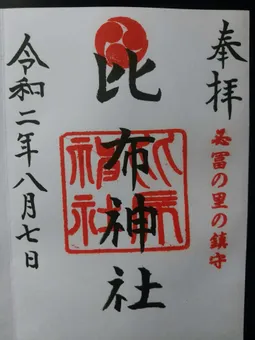 奉拝
比布の里の鎮守
比布神社
令和二年八月七日